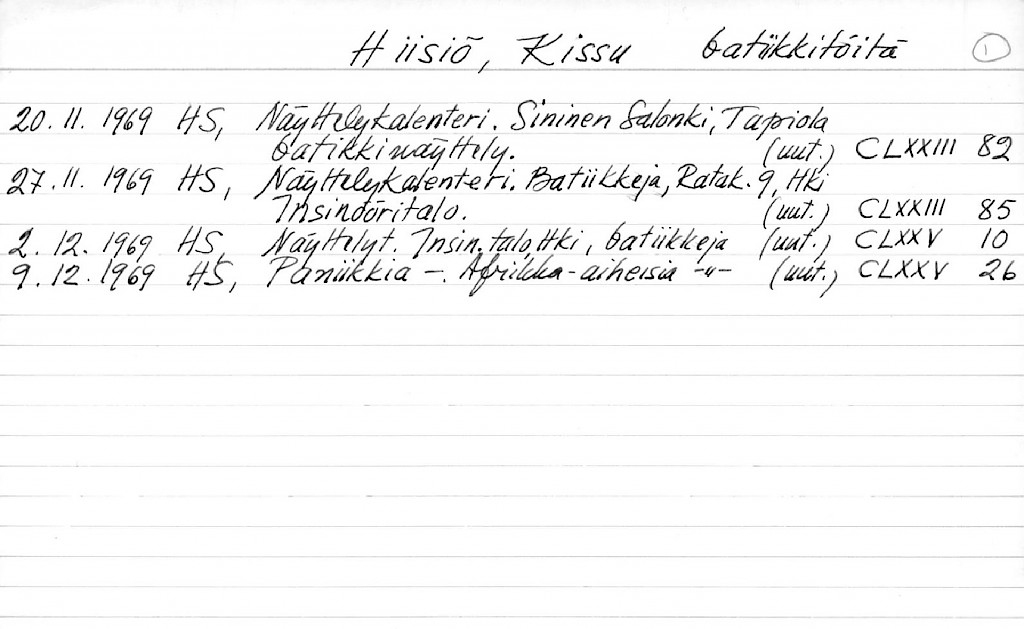 Hiisiö, Kissu batiikkitöitä 1
20.11.1969 HS, Näyttelykalenteri. Sininen Salonki, Tapiola
batikkinäyttely. (uut.) CLXXIII 82
27.11.1969 HS, Näyttelykalenteri. Batiikkeja, Ratak. 9, Hki
Insinööritalo. (uut.) CLXXIII 85
2.12.1969 HS, Näyttelyt. Insin.talo, Hki, batiikkeja (uut.) CLXXV 10
9.12.1969 HS, Paniikkia –. Afrikka-aiheisia -"- (uut.) CLXXV 26